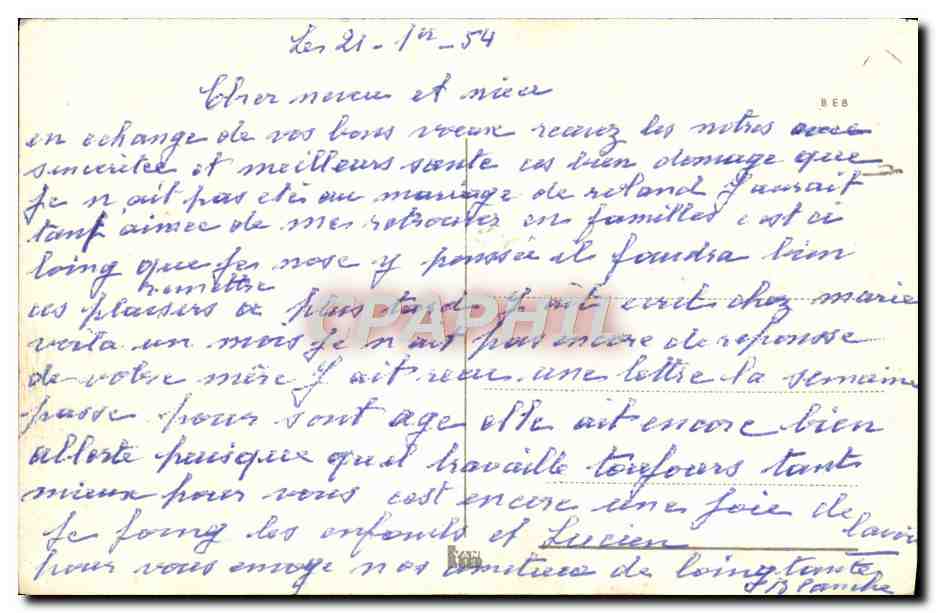 Les 21 - 1er - 54
Cher neveu et niece
BEB
en echange de vos bons voeux recevez les notres avec
sinceritee et meilleurs sante ces bien domage que
Je n'ait pas etés au mariage de roland J'aurait
tant aimee de mes retrouvez en familles c est si
loing que Je nose y poussée il faudra bien
remettre
ces plaisers a plus tard J ait ecrit chez marie
voila un mois Je n ait pas encore de reponsse
de votre mère J ait recu une lettre la semaine
passe pour sont age elle ait encore bien
allerte puisque qu'il travaille toujours tant
mieux pour vous c'est encore une joie de
Je joing les enfants et Lucien lavoir
pour vous envoyé nos amitiees de loing tante
Blanche
CPAPHIL